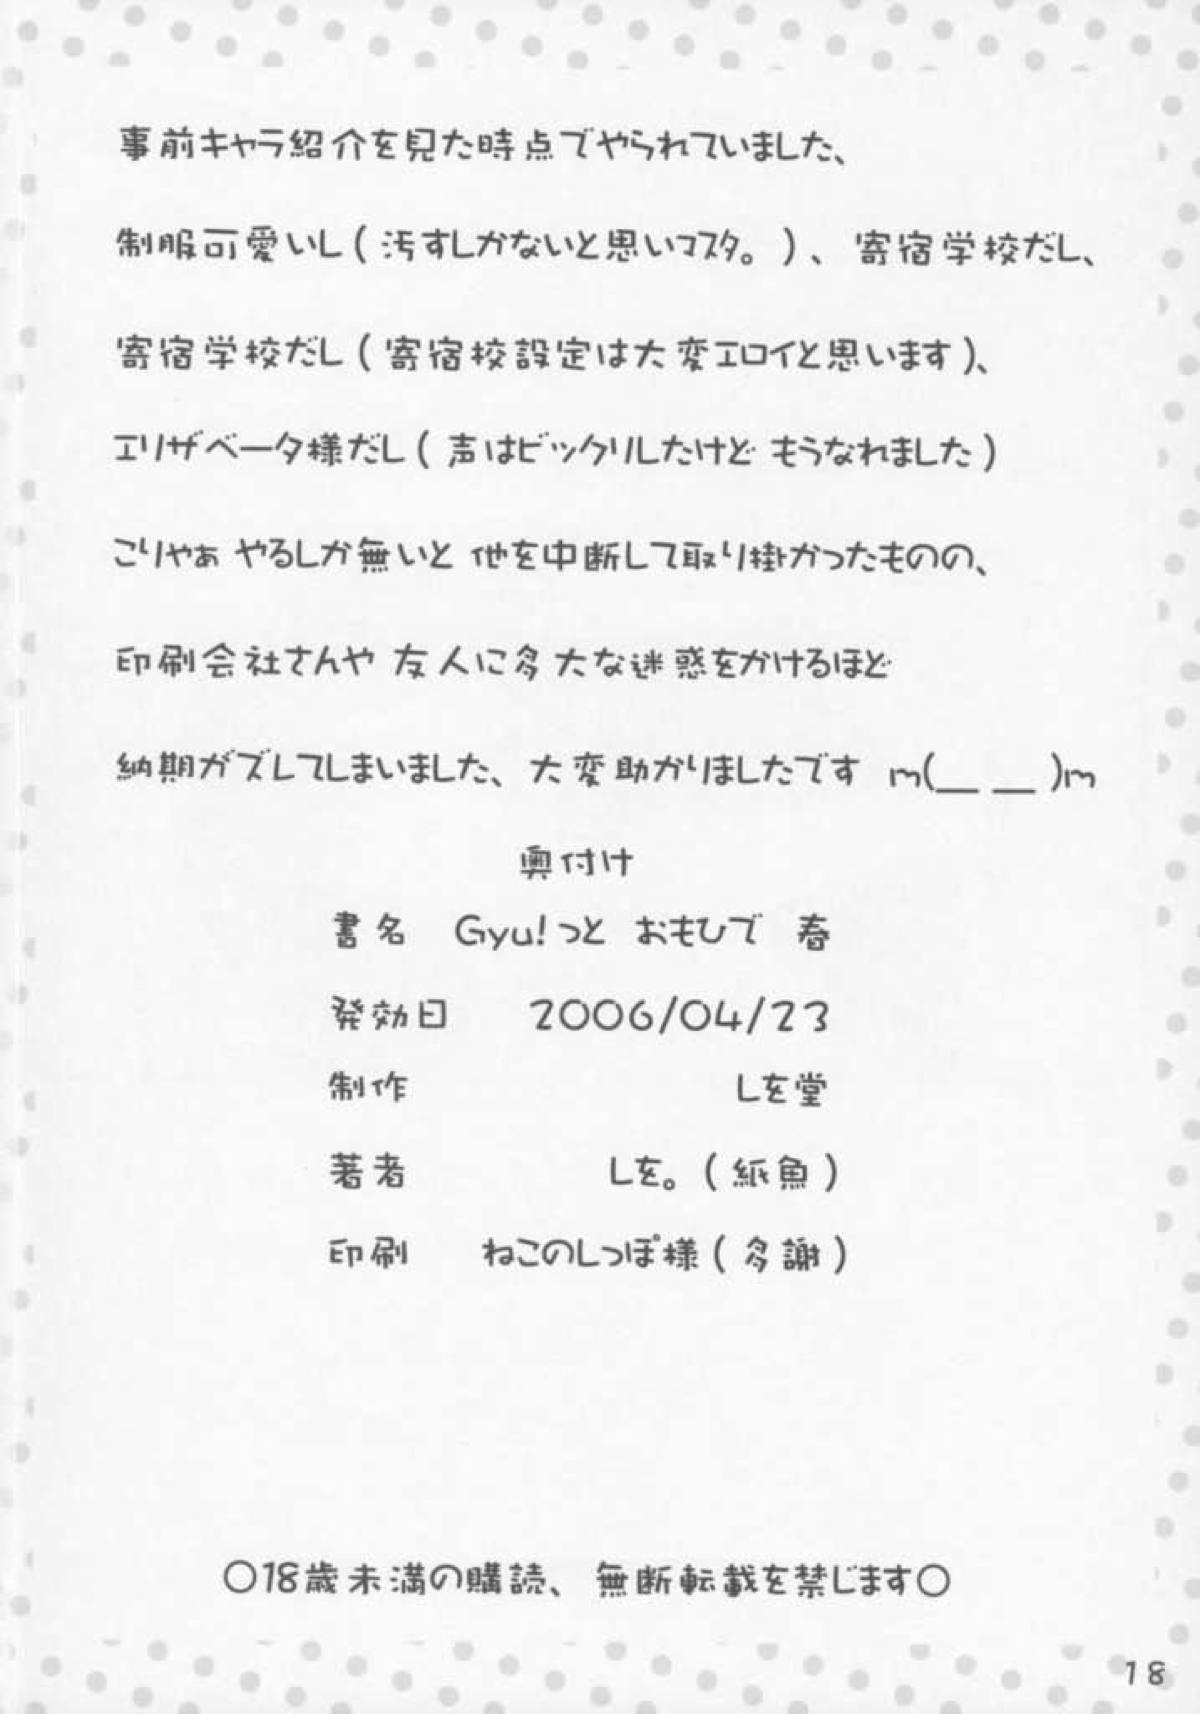 事前キャラ紹介を見た時点でやられていました、
制服可愛いし(汚すしかないと思いマスタ。)、寄宿学校だし、
寄宿学校だし(寄宿校設定は大変エロイと思います)、
エリザベータ様だし(声はビックリしたけど もうなれました)
こりやぁ やるしか無いと 他を中断して取り掛かったものの、
印刷会社さんや 友人に多大な迷惑をかけるほど
納期がズレてしまいました、大変助かりましたです m(__ __)m
奥付け
書名 Gyu!っと おもひで 春
発効日 2006/04/23
制作 しを堂
著者 しを。(紙魚)
印刷 ねこのしっぽ様(多謝)
〇18歳未満の購読、無断転載を禁じます〇
18